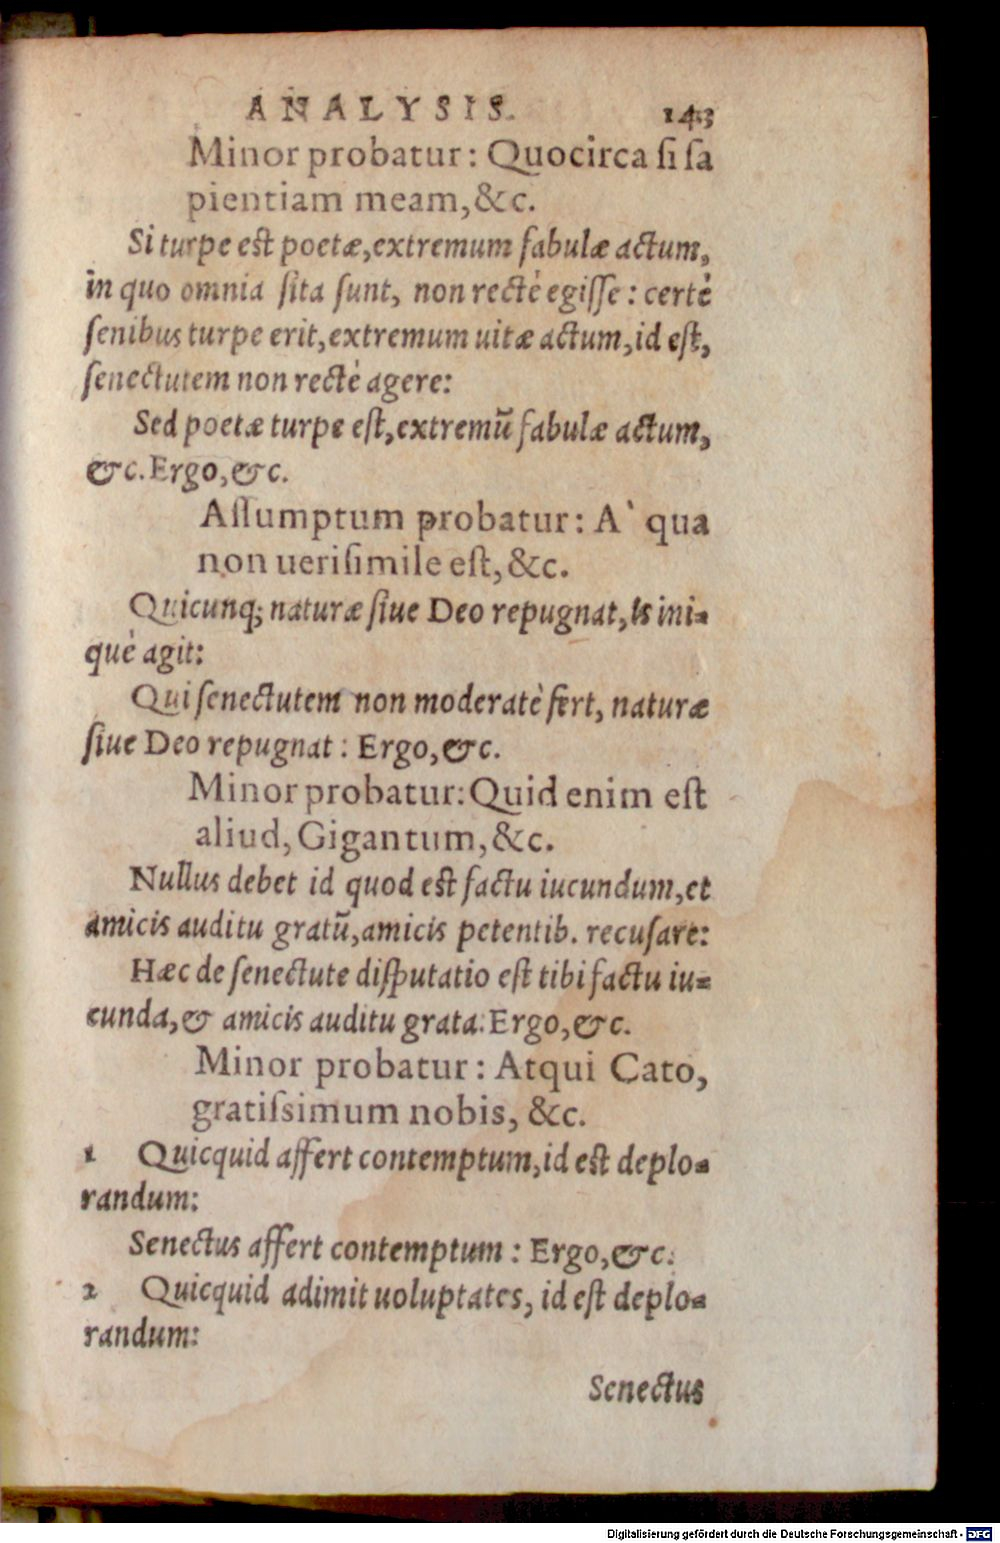 ANALYSIS. 143
Minor probatur: Quocirca si sa
pientiam meam, &c.
Si turpe est poetæ, extremum fabulæ actum,
in quo omnia sita sunt, non rectè egisse: certè
senibus turpe erit, extremum uitæ actum, id est,
senectutem non rectè agere:
Sed poetæ turpe est, extremũ fabulæ actum,
&c. Ergo, &c.
Assumptum probatur: A` qua
non uerisimile est, &c.
Quicunq; naturæ siue Deo repugnat, is ini-
què agit:
Qui senectutem non moderatè fert, naturæ
siue Deo repugnat: Ergo, &c.
Minor probatur: Quid enim est
aliud, Gigantum, &c.
Nullus debet id quod est factu iucundum, et
amicis auditu gratũ, amicis petentib. recusare:
Hæc de senectute disputatio est tibi factu iu-
cunda, & amicis auditu grata: Ergo, &c.
Minor probatur: Atqui Cato,
gratissimum nobis, &c.
1 Quicquid affert contemptum, id est deplo-
randum:
Senectus affert contemptum: Ergo, &c.
2 Quicquid adimit uoluptates, id est deplo-
randum:
Senectus
Digitalisierung gefördert durch die Deutsche Forschungsgemeinschaft - DFG